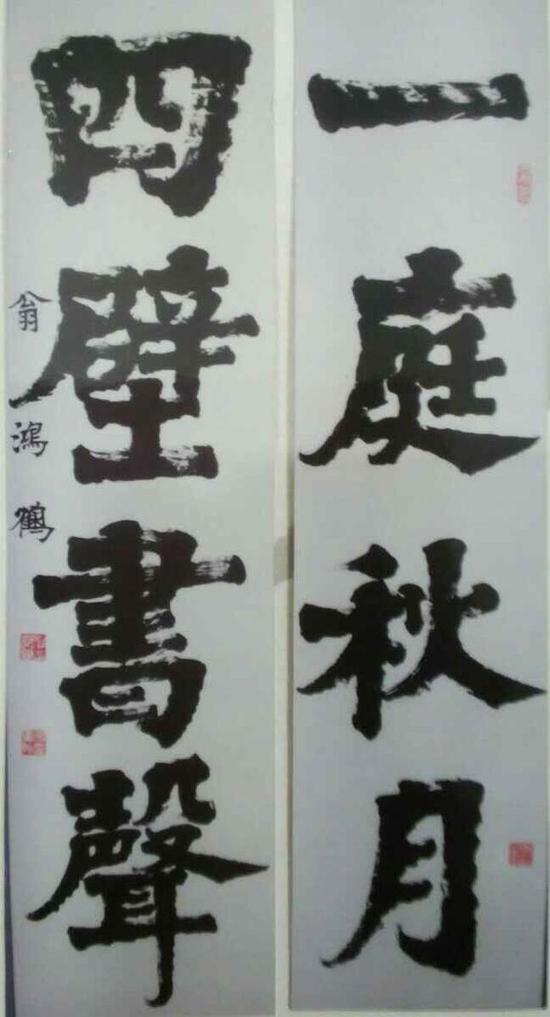 一庭秋月
四壁書聲
翁鴻鶴